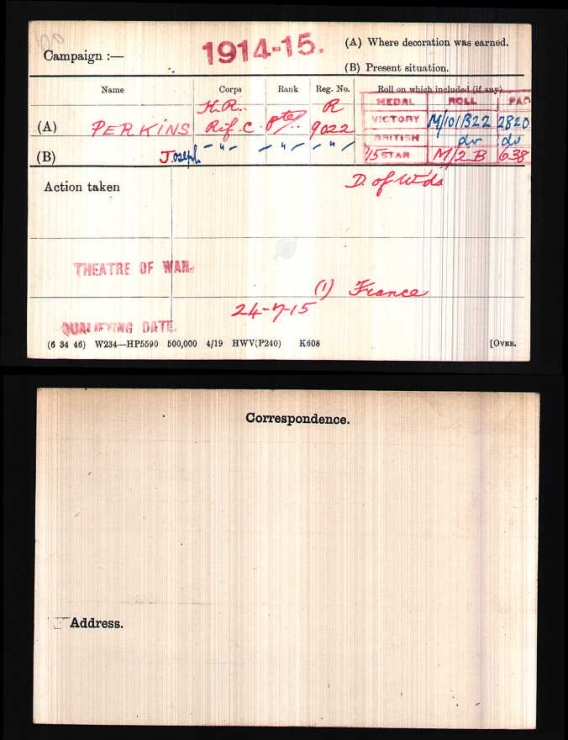 Campaign :— 1914-15. (A) Where decoration was earned.
(B) Present situation.
Name Corps Rank Reg. No. Roll on which included (if any)
MEDAL ROLL PAG
K.R. R
(A) PERKINS Rif. C. Pte 9022 VICTORY M/101B22 2820
BRITISH do do
(B) Joseph — " — — " — — " — '15 STAR M/2 B 638
Action taken D. of Wds
THEATRE OF WAR. (1) France
24-7-15
QUALIFYING DATE.
(6 34 46) W234—HP5590 500,000 4/19 HWV(P240) K608 [OVER.
Correspondence.
Address.